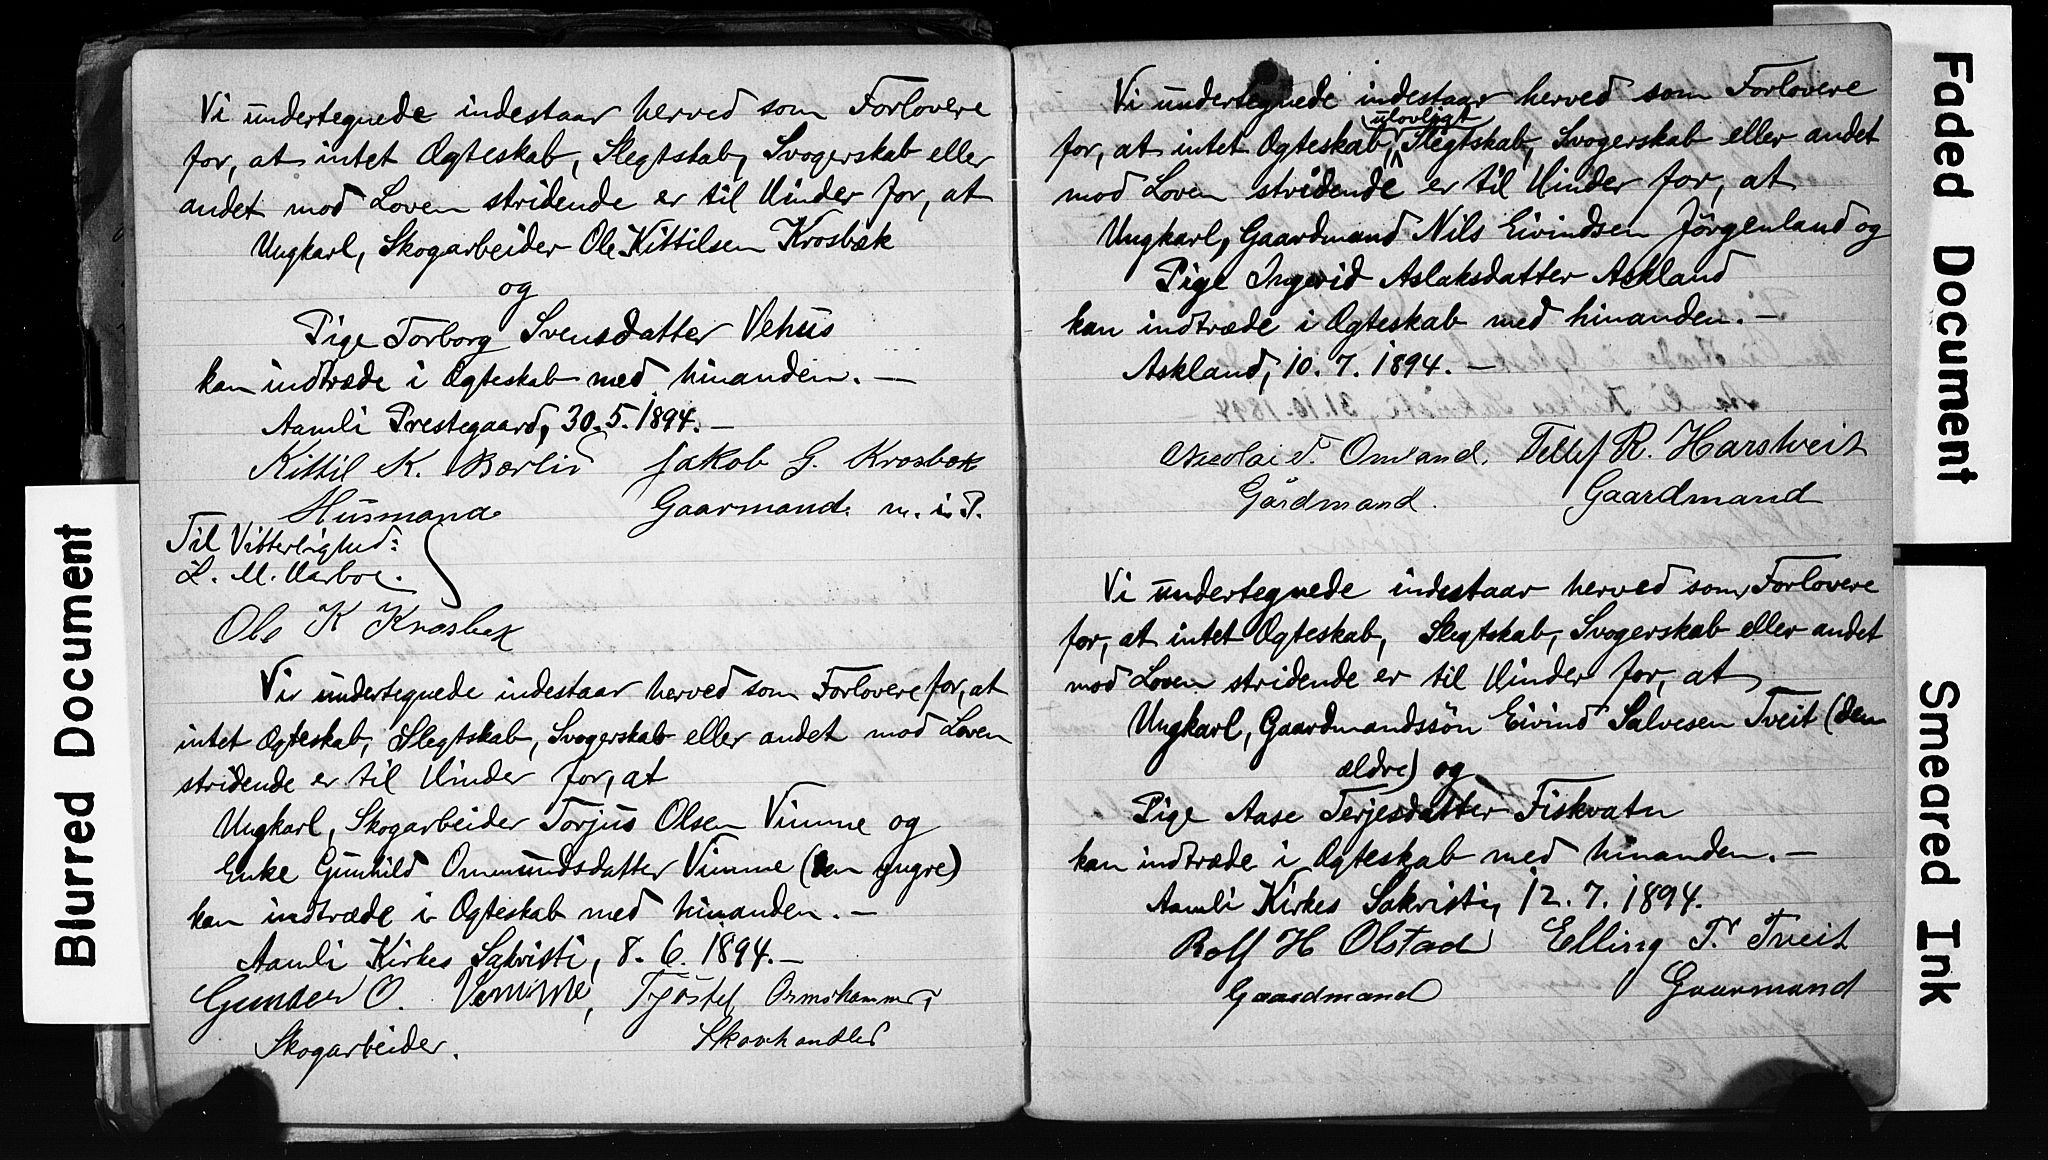 Vi undertegnede indestaar herved som Forlovere
for, at intet Ægteskab, Slegtskab, Svogerskab eller
andet mod Loven stridende er til Hinder for, at
Ungkarl, Skogarbeider Ole Kittilsen Krosbæk
og
Pige Torborg Svensdatter Vehus
kan indtræde i Ægteskab med hinanden. —
Aamli Prestegaard, 30.5.1894. —
Kittil K. Jakob G. Krosbæk
Husmand Gaarmand. m. i. P.
Til Vitterlighed:
L. M. Aarboe.
Ole K Krosbek
Vi undertegnede indestaar herved som Forlovere for, at
intet Ægteskab, Slegtskab, Svogerskab eller andet mod Loven
stridende er til Hinder for, at
Ungkarl, Skogarbeider Torjus Olsen Vimme og
Enke Gunhild Ommundsdatter Vimme (den yngre)
kan indtræde i Ægteskab med hinanden. —
Aamli Kirkes Sakristi, 8. 6. 1894. —
Gunder O. Vemme, Tjøstel
Skogarbeider. Skovhandler
Vi undertegnede indestaar herved som Forlovere
ulovligt
for, at intet Ægteskab, Slegtskab, Svogerskab eller andet
mod Loven stridende er til Hinder for, at
Ungkarl, Gaardmand Nils Eivindsen Jørgenland og
Pige Ingerid Aslaksdatter Askland
kan indtræde i Ægteskab med hinanden. —
Askland, 10. 7. 1894. —
Nicolai T. Omland. Tellef R. Harstveit
Gårdmand. Gaardmand
Vi undertegnede indestaar herved som Forlovere
for, at intet Ægteskab, Slegtskab, Svogerskab eller andet
mod Loven stridende er til Hinder for, at
Ungkarl, Gaardmandssön Eivind Salvesen Tveit (den
ældre) og
Pige Aase Terjesdatter Fiskvatn
kan indtræde i Ægteskab med hinanden. —
Aamli Kirkes Sakristi, 12. 7. 1894.
Rolf H Olstad Elling T. Tveit
Gaardmand Gaarmand
Blurred Document
Faded Document
Smeared Ink